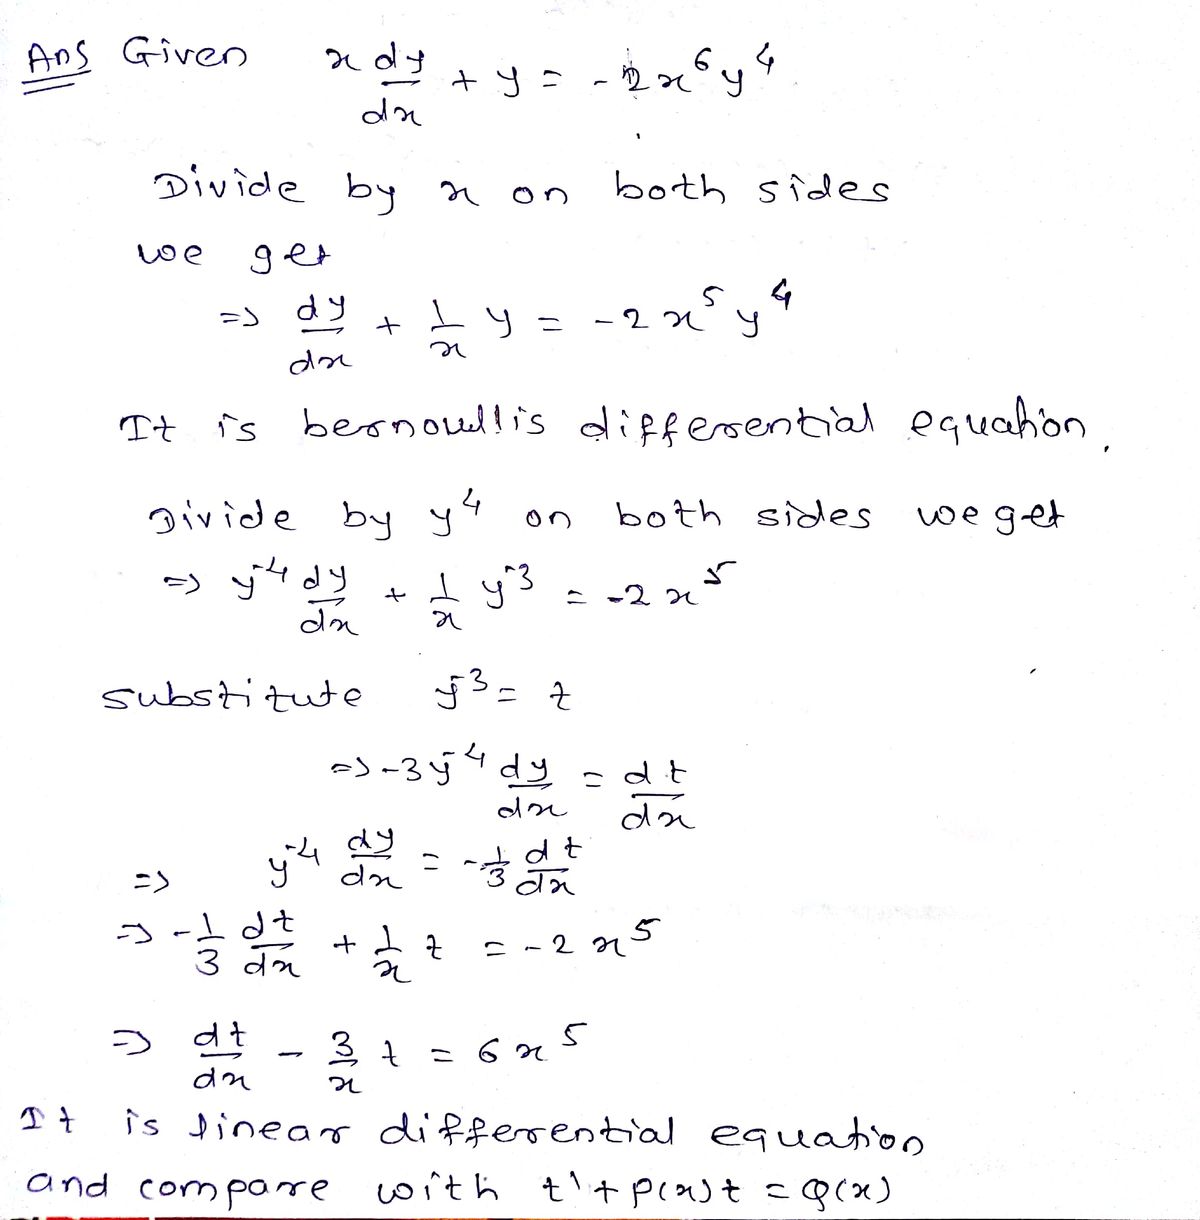 Ans Given x dy/dx + y = -2x⁶y⁴
Divide by x on both sides
we get
=> dy/dx + 1/x y = -2x⁵y⁴
It is bernoullis differential equation.
Divide by y⁴ on both sides we get
=> y⁻⁴ dy/dx + 1/x y⁻³ = -2x⁵
substitute y⁻³ = t
=> -3y⁻⁴ dy/dx = dt/dx
=> y⁻⁴ dy/dx = -1/3 dt/dx
=> -1/3 dt/dx + 1/x t = -2x⁵
=> dt/dx - 3/x t = 6x⁵
It is linear differential equation
and compare with t' + P(x)t = Q(x)